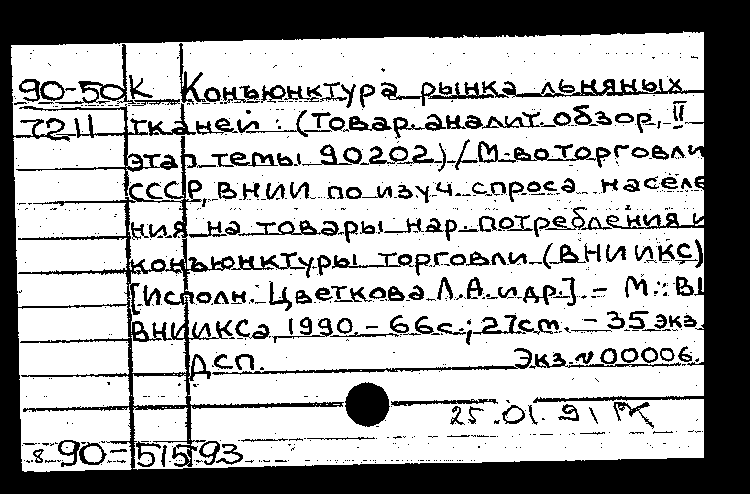 90-50К Конъюнктура рынка льняных
7211 тканей: (Товар.аналит.обзор, II
этап темы 90202)/М-во торговли
СССР, ВНИИ по изуч.спроса населе
ния на товары нар.потребления и
конъюнктуры торговли (ВНИИКС)
[Исполн. Цветкова Л.А.и др.]. - М.: ВЦ
ВНИИКСа, 1990. - 66с.; 27см. - 35экз.
ДСП. Экз.N00006.
25.01.91
8 90-51593